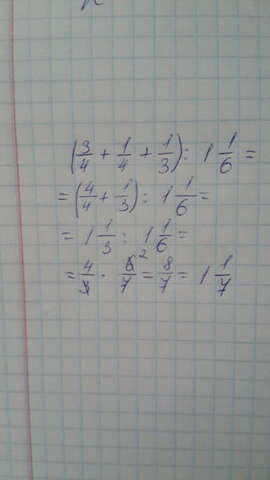 (3/4 + 1/4 + 1/3) : 1 1/6 =
= (4/4 + 1/3) : 1 1/6 =
= 1 1/3 : 1 1/6 =
= 4/3 · 6/7 2 = 8/7 = 1 1/7